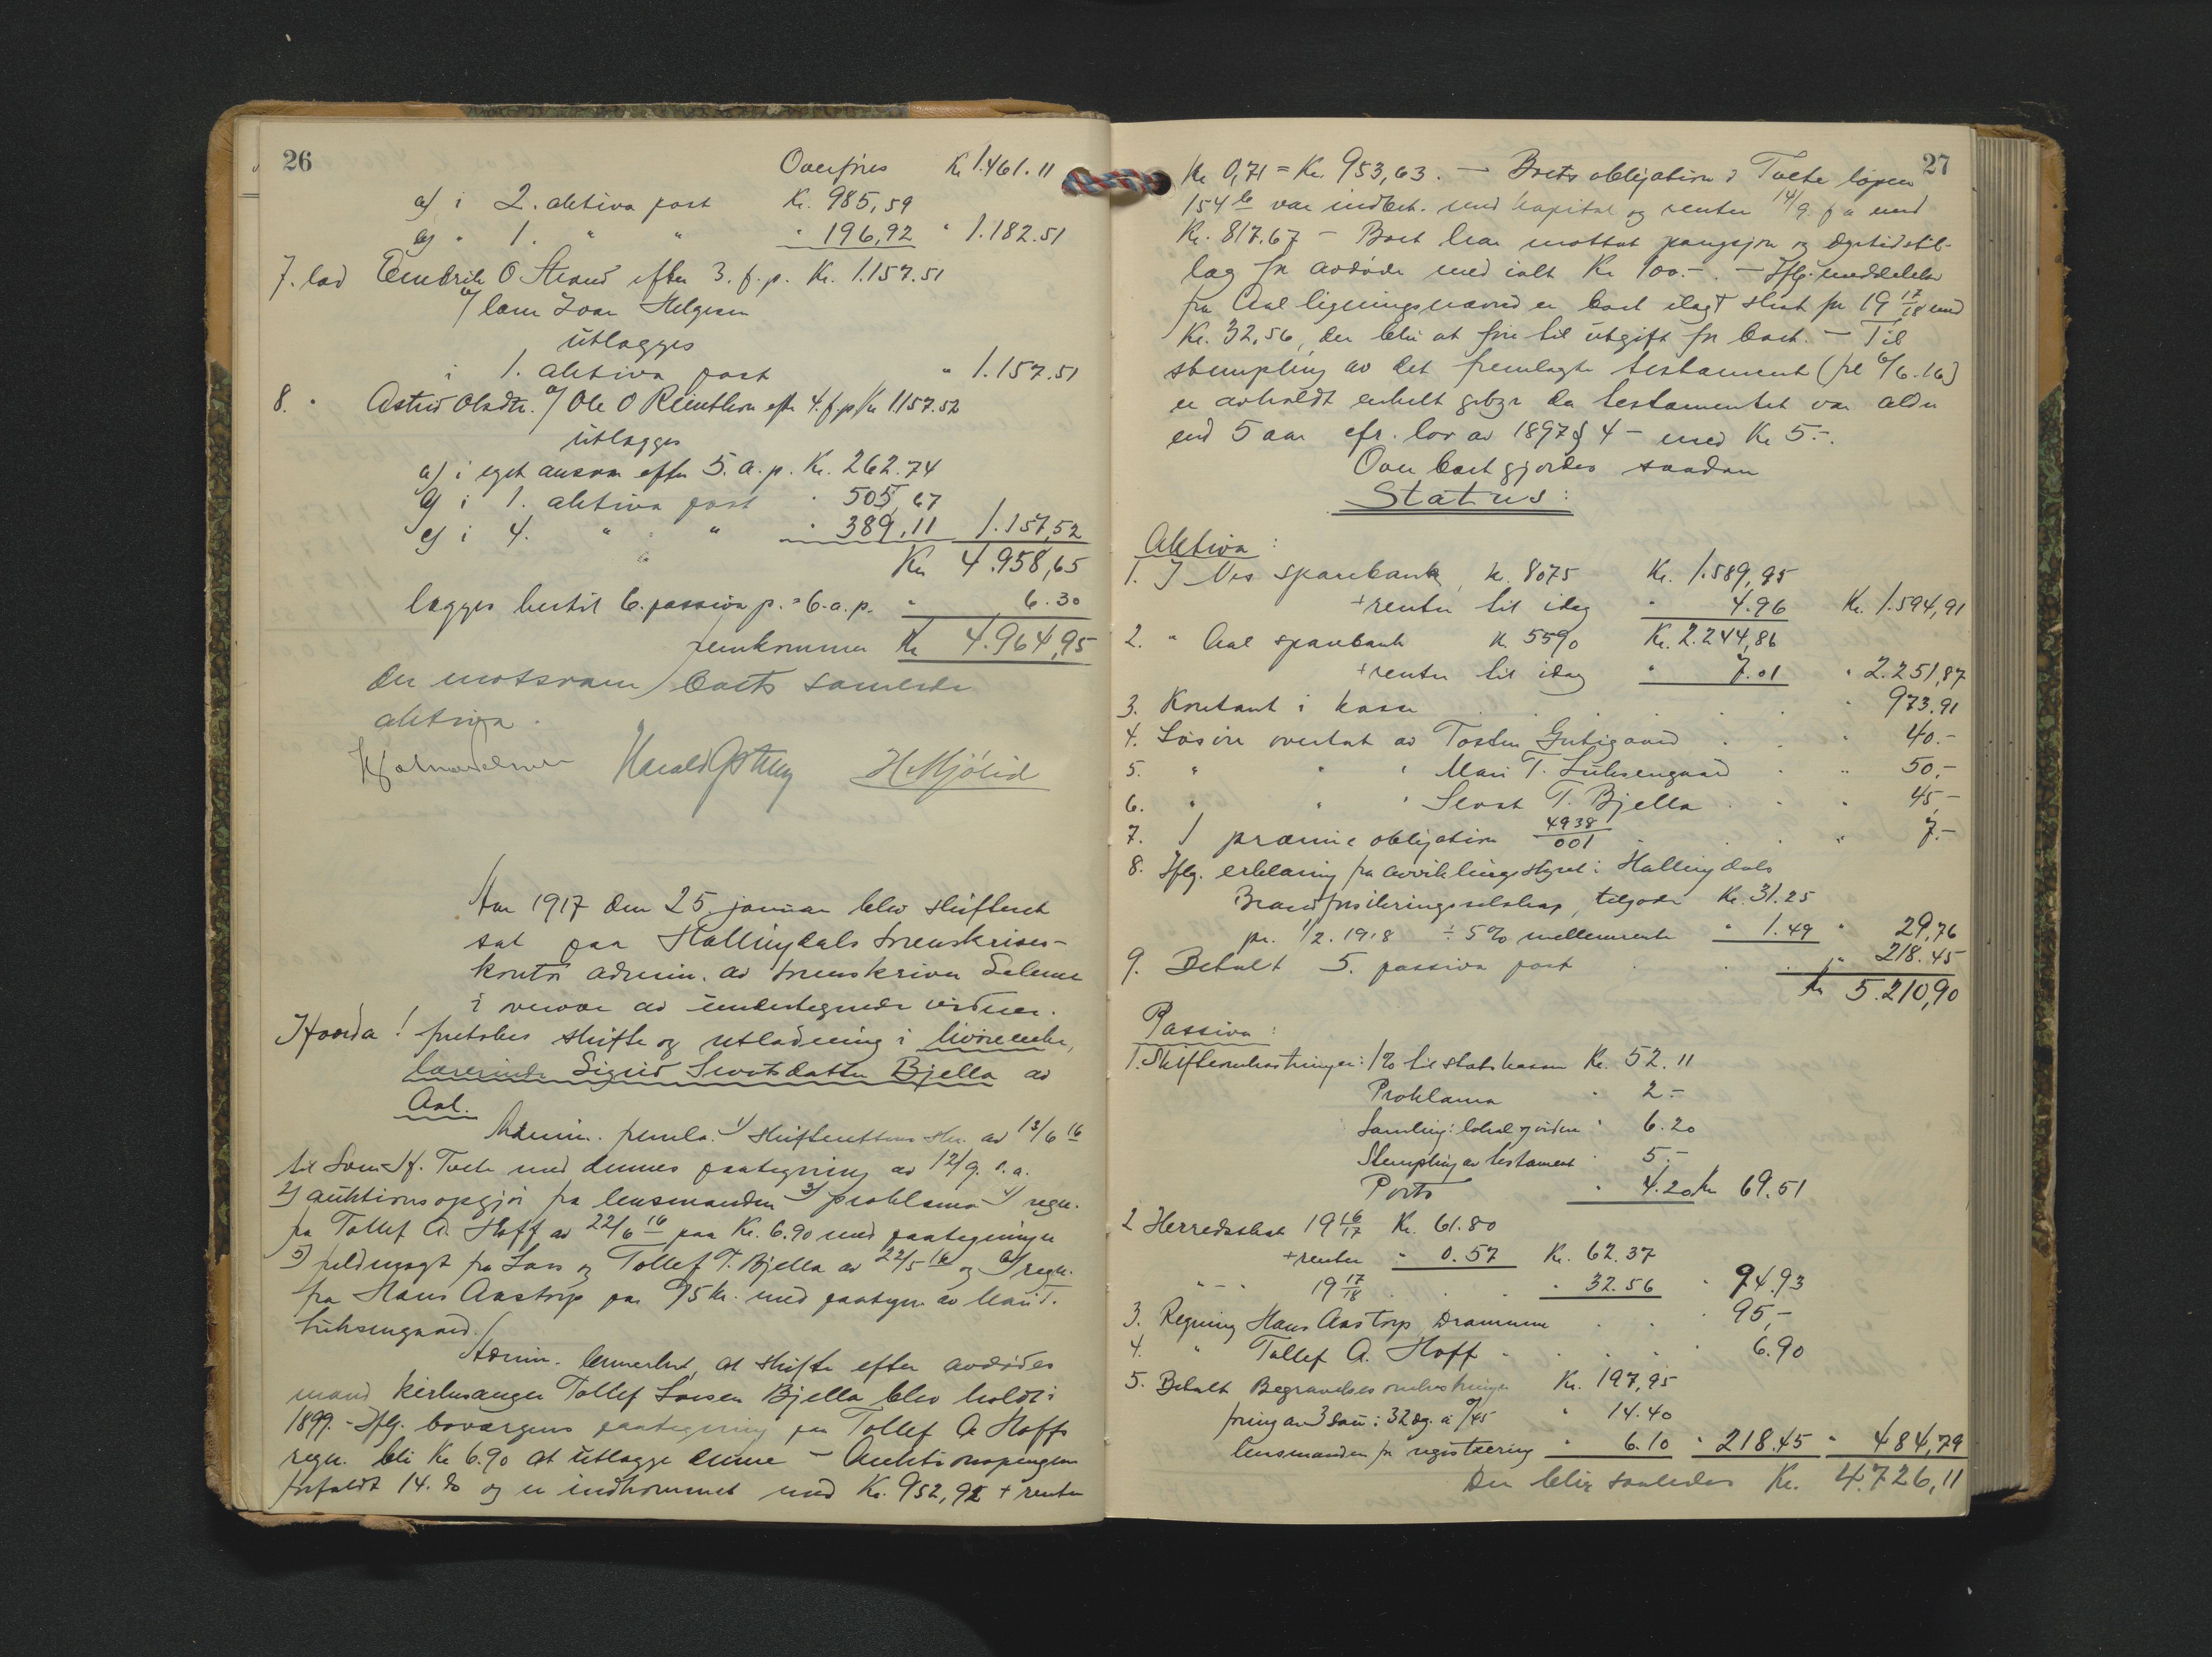 26
Overføres Kr 1.461.11
a) i 2. aktiva post Kr. 985,59
b) " 1. " " " 196,92 " 1.182.51
7. lod Embrik O Strand efter 3. f. p. Kr. 1.157.51
v/ Ivar Helgesen
utlægges
i 1. aktiva post " 1.157.51
8. " Astrid Olsdtr. v/ Ole O efter 4. f. p. Kr 1157.52
utlægges
a) i eget ansvar efter 5. a. p. Kr. 262.74
b) i 1. aktiva post " 505,67
c) i 4. " " " 389,11 1.157,52
Kr 4.958,65
lægges hertil 6. passiva p. = 6. a. p. " 6.30
fremkommer Kr 4.964,95
der motsvarer boets samlede
aktiva.
H Mjølid
Aar 1917 den 25 januar blev skifteret
sat paa Hallingdals sorenskriver-
kontor admin. av sorenskriver Selmer
i nærvær av undertegnede vidner.
Hvorda! foretokes skifte og utlodning i
lærerinde Sigrid Sevatsdatter Bjella av
Aal.
Admin. fremla. 1) skifterettens skr. av 13/6 16
til Tveto med dennes paategning av 12/9. s. a.
2) auktionsopgjør fra lensmanden 3) proklama 4) regn.
fra Tollef A. Hoff av 22/6 16 paa Kr. 6.90 med paategninger
5) fuldmagt fra Lars og Tollef T. Bjella av 22/5 16 og 6) regn.
fra Hans Aastorp paa 95 kr. med paategn. av Mari T.
Luksengaard.
Admin. bemerket, at skifte efter avdødes
mand kirkesanger Tollef Larsen Bjella blev holdt i
1899. - Iflg. boværgens paategning paa Tollef A Hoffs
regn. bli Kr 6.90 at utlægge denne - Auktionspengene
forfaldt 14. ds og er indkommet med Kr. 952,92 + renter
27
Kr 0,71 = Kr. 953,63. - Boets obligation i Tveto løpen
154 var indbet. med kapital og renter 14/9. f a med
Kr. 817.67 - Boet har mottat pengsjon og dyrtidstil-
læg for avdøde med ialt Kr 100.-. - Iflg. meddelelse
fra Aal ligningsnævnd er boet ilagt skat for 19 17/18 med
Kr. 32,56, der blir at føre til utgift for boet. - Til
stempling av det fremlagte testament (fra 6/6.16)
er avholdt enkelt gebyr da testamentet var ældre
end 5 aar cfr. lov av 1897 § 4 - med Kr 5.-.
Over boet gjordes saadan
Status:
Aktiva:
1. I Nes sparebank, k. 8075 Kr. 1.589,95
+ renter til idag " 4.96 Kr. 1.594,91
2. " Aal sparebank k. 5590 Kr. 2.244,86
+ renter til idag " 7.01 " 2.251,87
3. Kontant i kassa " 973.91
4. Løsøre overtat av Tosten " 40.-
5. " " " Mari T. Luksengaard " 50,-
6. " " " Sevat T. Bjella " 45,-
7. 1 præmieobligation 4938/001 " 7.-
8. Iflg. erklæring fra avviklingsstyret i Hallingdals
Brandforsikringsselskap, tilgode Kr. 31.25
pr. 1/2.1918 ÷ 5% mellemrente " 1.49 " 29,76
9. Betalt 5. passiva post " 218.45
Kr 5.210,90
Passiva:
1. Skifteomkostninger: 1% til statskassen Kr. 52.11
Proklama " 2.-
Samling: lokal og vidner " 6.20
Stempling av testament " 5.-
Porto " 4.20 Kr 69.51
2 Herredsskat 19 16/17 Kr. 61.80
+ renter " 0.57 Kr. 62.37
" - " 19 17/18 " 32.56 " 94.93
3. Regning Hans Aastorp Drammen " 95,-
4. " Tollef A. Hoff " 6.90
5. Betalt Begravelsesomkostninger Kr. 197,95
foring av 3 sau i 32 dg. a 0/45 " 14.40
lensmanden for registrering " 6.10 " 218.45 " 484,79
Der blir saaledes Kr. 4.726,11